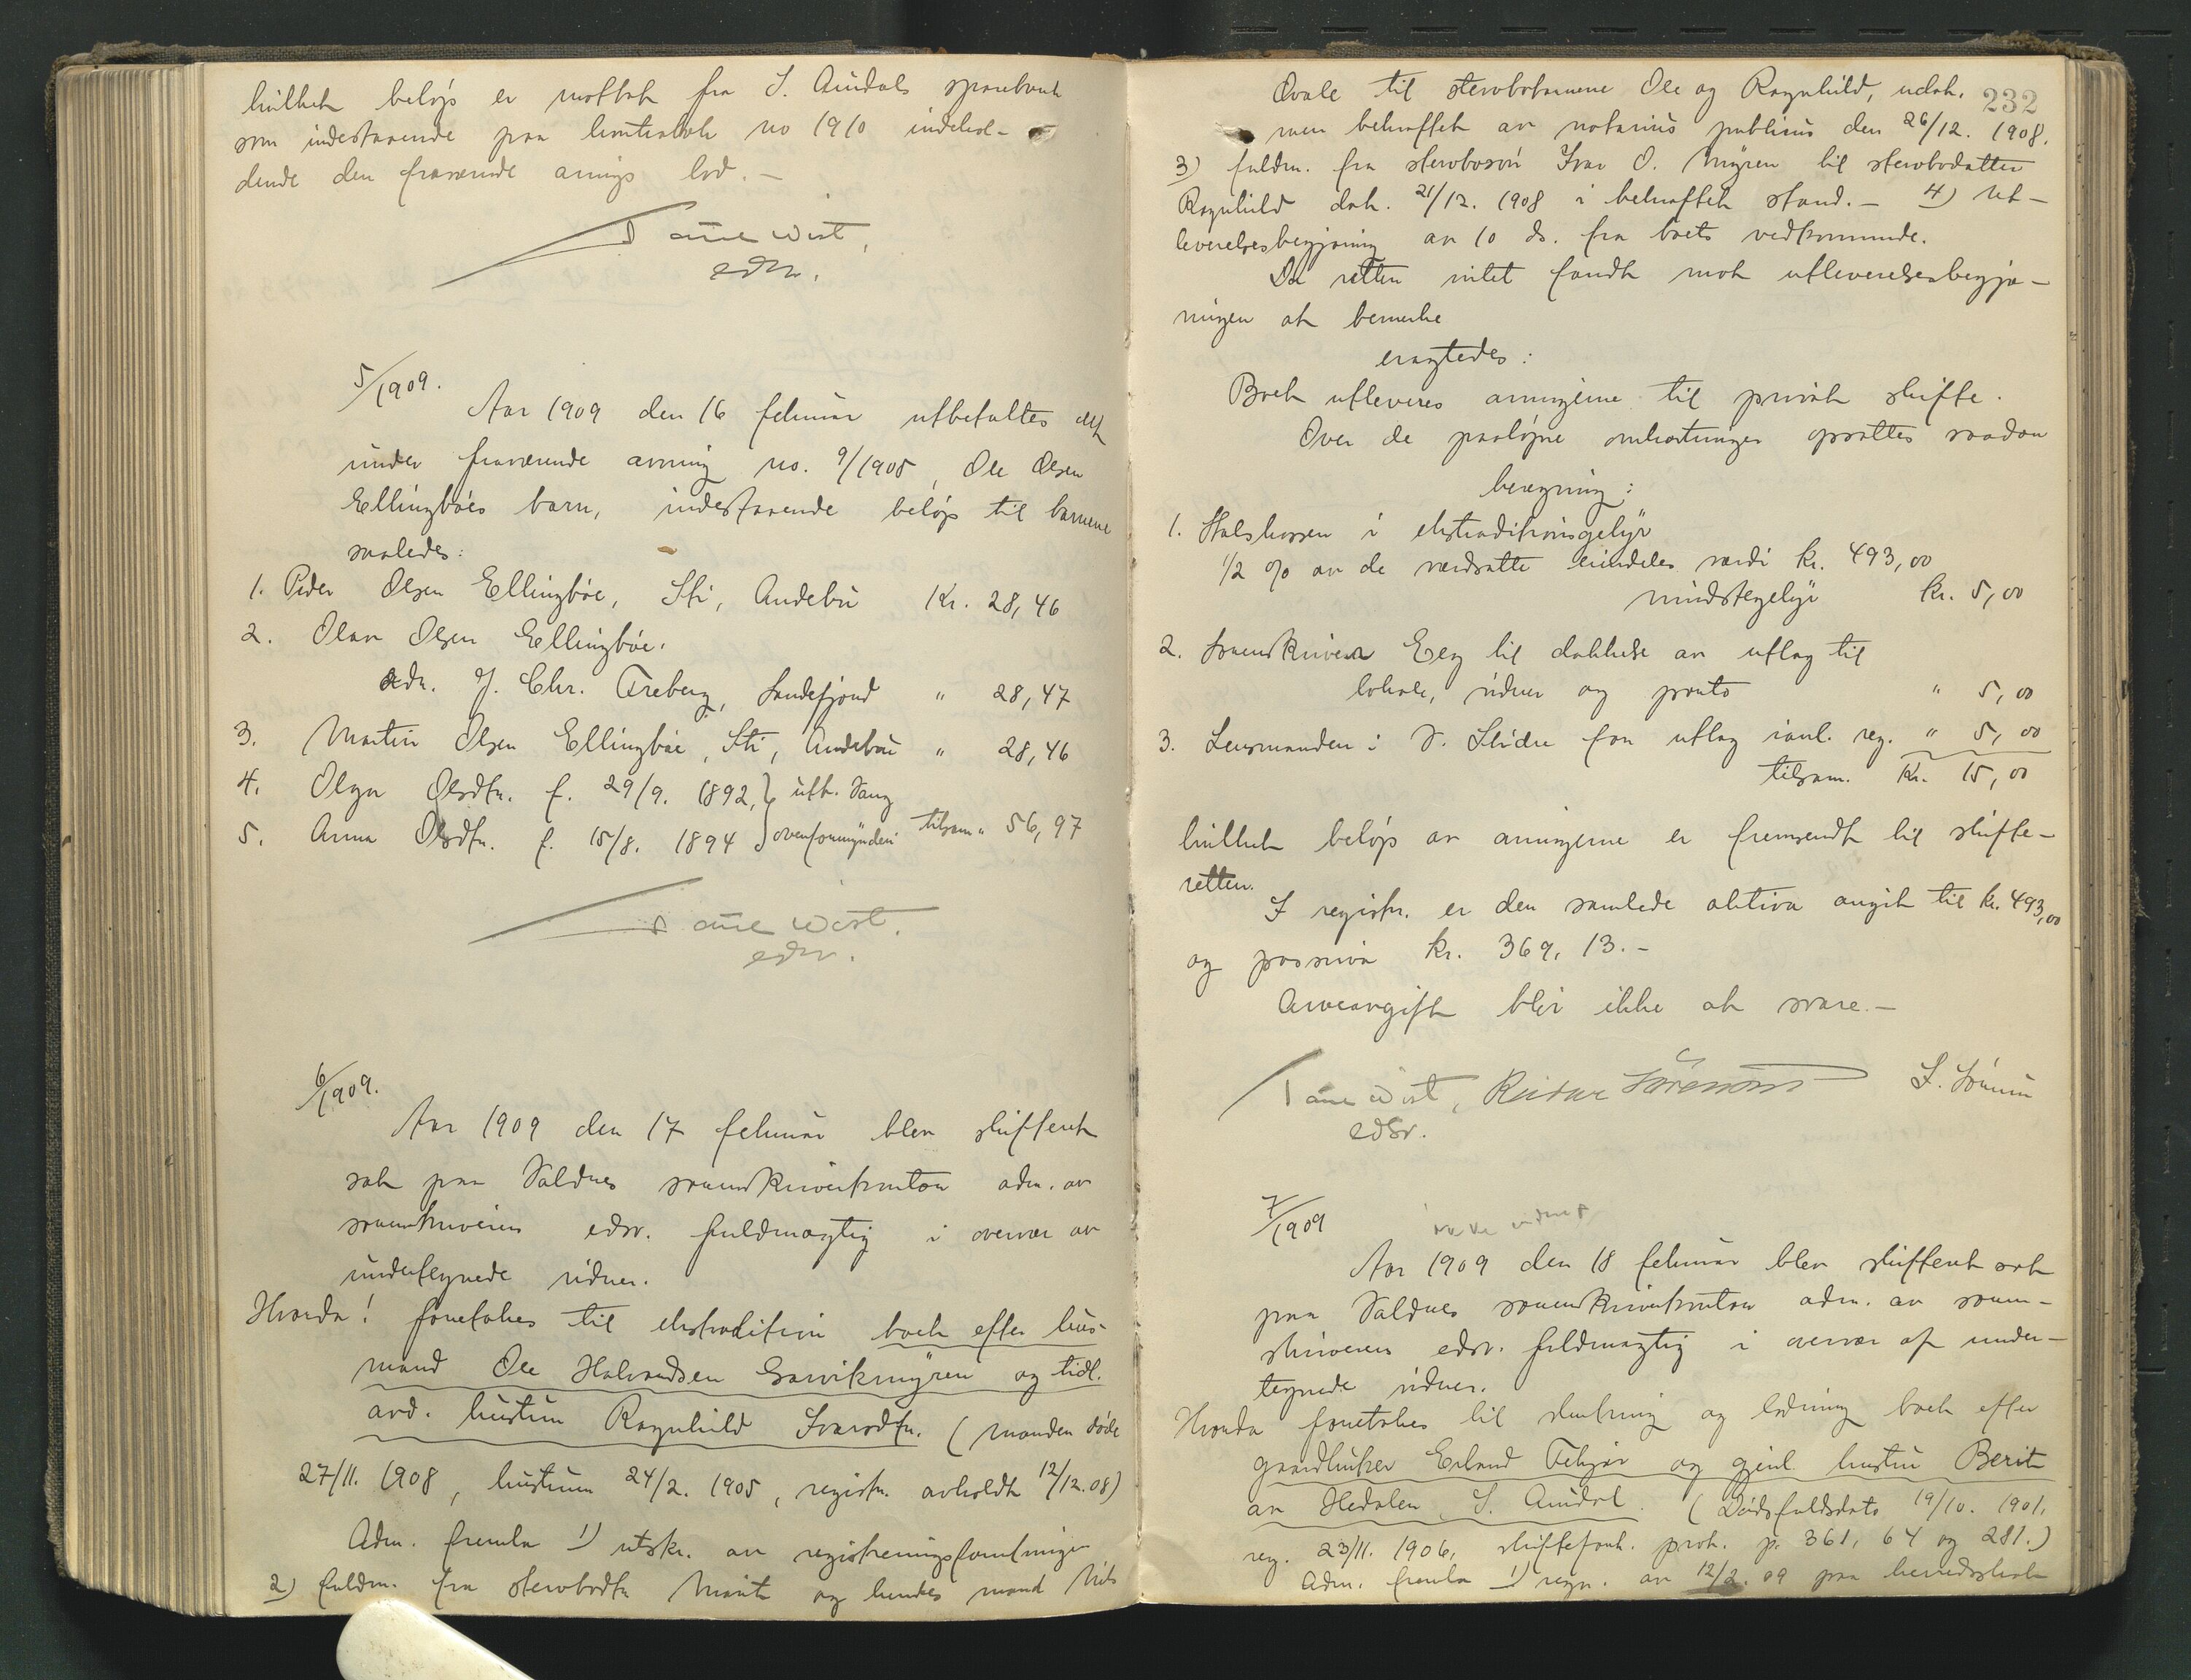 hvilket beløp er mottat fra S. Aurdals sparebank
som indestaaende paa kontrabok no 1910 indehol-
dende den fraværende arvings lod. –
Tane Wist,
edsv.
5/1909.
Aar 1909 den 16 februar utbetaltes det
under fraværende arving no. 9/1905, Ole Olsen
Ellingbøes barn, indestaaende beløp til barnene
saaledes:
1. Peder Olsen Ellingbøe, Sti, Andebu Kr. 28,46
2. Olav Olsen Ellingbøe.
adr. J. Chr. Freberg, Sandefjord " 28,47
3. Martin Olsen Ellingbøe, Sti, Andebu " 28,46
4. Olga Olsdtr. f. 29/9. 1892, } utb. Vang
5. Anna Olsdtr. f. 15/8. 1894 } overformynderi tilsam " 56,97
Tane Wist.
edsv.
6/1909.
Aar 1909 den 17 februar blev skifteret
sat paa Valdres sorenskriverkontor adm. av
sorenskriverens edsv. fuldmægtig i overvær av
undertegnede vidner.
Hvorda! foretokes til ekstradition boet efter hus-
mand Ole Halvordsen Garvikmyren og tidl.
avd. hustru Ragnhild Ivarsdtr. (manden døde
27/11. 1908, hustruen 24/2. 1905, registr. avholdt 12/12.08)
Adm. fremla 1) utskr. av registreringsforretningen
2) fuldm. fra stervbodtr. Marit og hendes mand Nils
232
Ovale til stervbobarnene Ole og Ragnhild, udat.
men bekræftet av notarius publicus den 26/12. 1908.
3) fuldm. fra stervbosøn Ivar O. Myren til stervbodatter
Ragnhild dat. 21/12. 1908 i bekræftet stand. – 4) Ut-
leverelsesbegjæring av 10 ds. fra boets vedkommende.
Da retten intet fandt mot utleverelsesbegjæ-
ringen at bemerke
eragtedes:
Boet utleveres arvingerne til privat skifte.
Over de paaløpne omkostninger opsattes saadan
beregning:
1. Statskassen i ekstraditionsgebyr
1/2 % av de værdsatte eiendeles værdi kr. 493,00
mindstegebyr kr. 5,00
2. Sorenskriver Eeg til dækkelse av utlag til
lokale, vidner og porto " 5,00
3. Lensmanden i V. Slidre for utlag ianl. reg. " 5,00
tilsam. Kr. 15,00
hvilket beløp av arvingerne er fremsendt til skifte-
retten.
I registr. er den samlede aktiva angit til kr. 493,00
og passiva kr. 369,13. –
Arveavgift blir ikke at svare. –
Tane Wist, Reidar Sørensen
edsv.
7/1909
Aar 1909 den 18 februar blev skifteret sat
paa Valdres sorenskriverkontor adm. av soren-
skriverens edsv. fuldmægtig i overvær af under-
tegnede vidner.
Hvorda foretokes til slutning og lodning boet efter
gaardbruker Erland og gjenl. hustru Berit
av Hedalen S. Aurdal. (Dødsfaldsdato 19/10. 1901,
reg. 23/11. 1906, skifteforh. prot. p. 361, 64 og 281.)
Adm. fremla 1) regn. av 12/2. 09 paa herredsskat